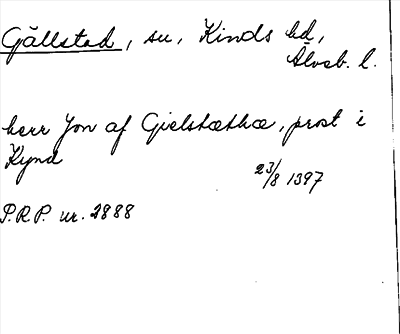 Gällstad, sn, Kinds hd,
Älvsb. l.
herr Jon af Gielstæthæ, prost i
Kynd
23/8 1397
P.R.P. nr. 2888